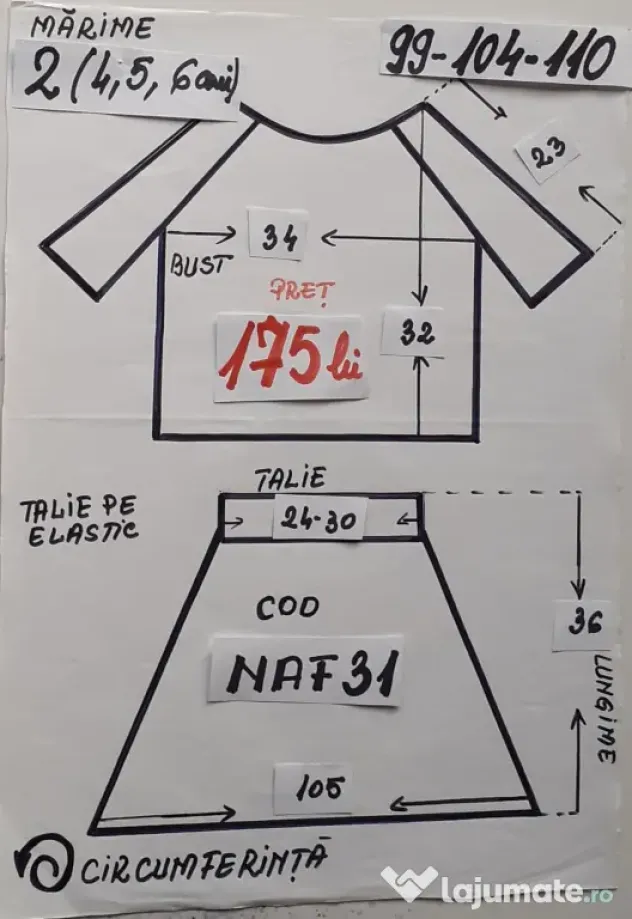 MĂRIME
2 (4, 5, 6 ani)
99-104-110
23
34
BUST
PREȚ
175 lei
32
TALIE
TALIE PE
ELASTIC
24-30
COD
NAF31
36
LUNGIME
105
CIRCUMFERINȚĂ
lajumate.ro